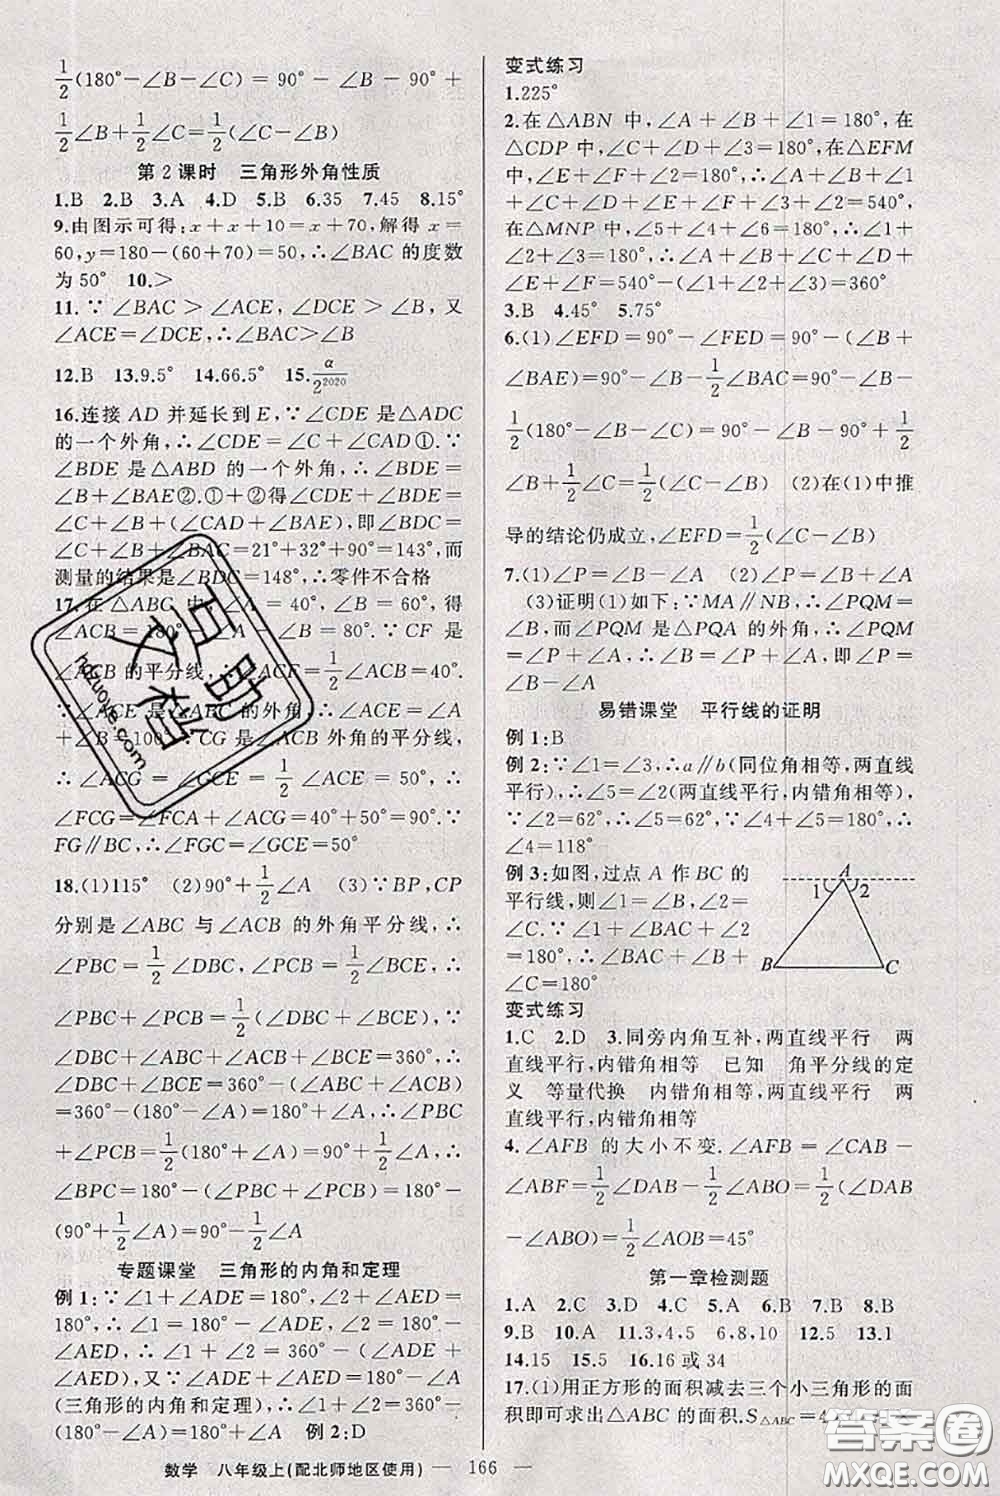 1/2(180°−∠B−∠C) = 90° − ∠B − 90° +
1/2∠B+1/2∠C=1/2(∠C−∠B)
第2课时 三角形外角性质
1.B 2.B 3.A 4.D 5.B 6.35 7.45 8.15°
9.由图示可得:x+x+10=x+70,解得x=
60,y=180−(60+70)=50,∴∠BAC的度数
为50° 10.>
11.∵∠BAC>∠ACE,∠DCE>∠B,又
∠ACE=∠DCE,∴∠BAC>∠B
12.B 13.9.5° 14.66.5° 15.α/2²⁰²⁰
16.连接AD并延长到E,∵∠CDE是△ADC
的一个外角,∴∠CDE=∠C+∠CAD①.∵
∠BDE是△ABD的一个外角,∴∠BDE=
∠B+∠BAE②.①+②得∠CDE+∠BDE=
∠C+∠B+(∠CAD+∠BAE),即∠BDC=
∠B+∠C+∠BAC=21°+32°+90°=143°,而
测量的结果是∠BDC=148°,∴零件不合格
17.在△ABC中,∠A=40°,∠B=60°,得
∠ACB=180°−∠A−∠B=80°.∵CF是
∠ACB的平分线,∴∠FCA=1/2∠ACB=40°.
∵∠ACE是△ABC的外角,∴∠ACE=∠A
+∠B=100°.∵CG是△ABC外角的平分线,
∴∠ACG=∠GCE=1/2∠ACE=50°,∴
∠FCG=∠FCA+∠ACG=40°+50°=90°.∵
FG∥BC,∴∠FGC=∠GCE=50°
18.(1)115° (2)90°+1/2∠A (3)∵BP,CP
分别是∠ABC与∠ACB的外角平分线,∴
∠PBC=1/2∠DBC,∠PCB=1/2∠BCE,∴
∠PBC+∠PCB=1/2(∠DBC+∠BCE),∵
∠DBC+∠ABC+∠ACB+∠BCE=360°,∴
∠DBC+∠BCE=360°−(∠ABC+∠ACB)
=360°−(180°−∠A)=180°+∠A,∴∠PBC
+∠PCB=1/2(180°+∠A)=90°+1/2∠A,∴
∠BPC=180°−(∠PBC+∠PCB)=180°−
(90°+1/2∠A)=90°−1/2∠A
专题课堂 三角形的内角和定理
例1:∵∠1+∠ADE=180°,∠2+∠AED=
180°,∴∠1=180°−∠ADE,∠2=180°−
∠AED,∴∠1+∠2=360°−(∠ADE+
∠AED),又∵∠ADE+∠AED=180°−∠A
(三角形的内角和定理),∴∠1+∠2=360°−
(180°−∠A)=180°+∠A 例2:D
变式练习
1.225°
2.在△ABN中,∠A+∠B+∠1=180°,在
△CDP中,∠C+∠D+∠3=180°,在△EFM
中,∠E+∠F+∠2=180°,∴∠A+∠B+∠1
+∠C+∠D+∠3+∠E+∠F+∠2=540°,
在△MNP中,∠5+∠4+∠6=180°,∴∠1
+∠2+∠3=180°,∴∠A+∠B+∠C+∠D
+∠E+∠F=540°−(∠1+∠2+∠3)=360°
3.B 4.45° 5.75°
6.(1)∠EFD=90°−∠FED=90°−(∠B+
∠BAE)=90°−∠B−1/2∠BAC=90°−∠B−
1/2(180°−∠B−∠C)=90°−∠B−90°+1/2
∠B+1/2∠C=1/2(∠C−∠B) (2)在(1)中推
导的结论仍成立,∠EFD=1/2(∠C−∠B)
7.(1)∠P=∠B−∠A (2)∠P=∠B+∠A
(3)证明(1)如下:∵MA∥NB,∴∠PQM=
∠B,而∠PQM是△PQA的外角,∴∠PQM
=∠P+∠A,∴∠B=∠P+∠A,即∠P=
∠B−∠A
易错课堂 平行线的证明
例1:B
例2:∵∠1=∠3,∴a∥b(同位角相等,两直线
平行),∴∠5=∠2(两直线平行,内错角相等),
∵∠2=62°,∴∠5=62°,∵∠4+∠5=180°,∴
∠4=118°
例3:如图,过点A作BC的
平行线,则∠1=∠B,∠2=
∠C.∵∠1+∠BAC+∠2
=180°,∴∠BAC+∠B+
∠C=180°
A
1
2
B
C
变式练习
1.C 2.D 3.同旁内角互补,两直线平行 两
直线平行,内错角相等 已知 角平分线的定
义 等量代换 内错角相等,两直线平行 两
直线平行,内错角相等
4.∠AFB的大小不变.∠AFB=∠CAB−
∠ABF=1/2∠DAB−1/2∠ABO=1/2(∠DAB
−∠ABO)=1/2∠AOB=45°
第一章检测题
1.A 2.C 3.D 4.C 5.A 6.B 7.B 8.B
9.B 10.A 11.3,4,5 6,8,10 12.5 13.1
14.15 15.5 16.16或34
17.(1)用正方形的面积减去三个小三角形的面
积即可求出△ABC的面积.S△ABC=4
数学 八年级上(配北师地区使用) — 166 —
互助
文档
hdzuoye.com
答案圈
MXQE.COM